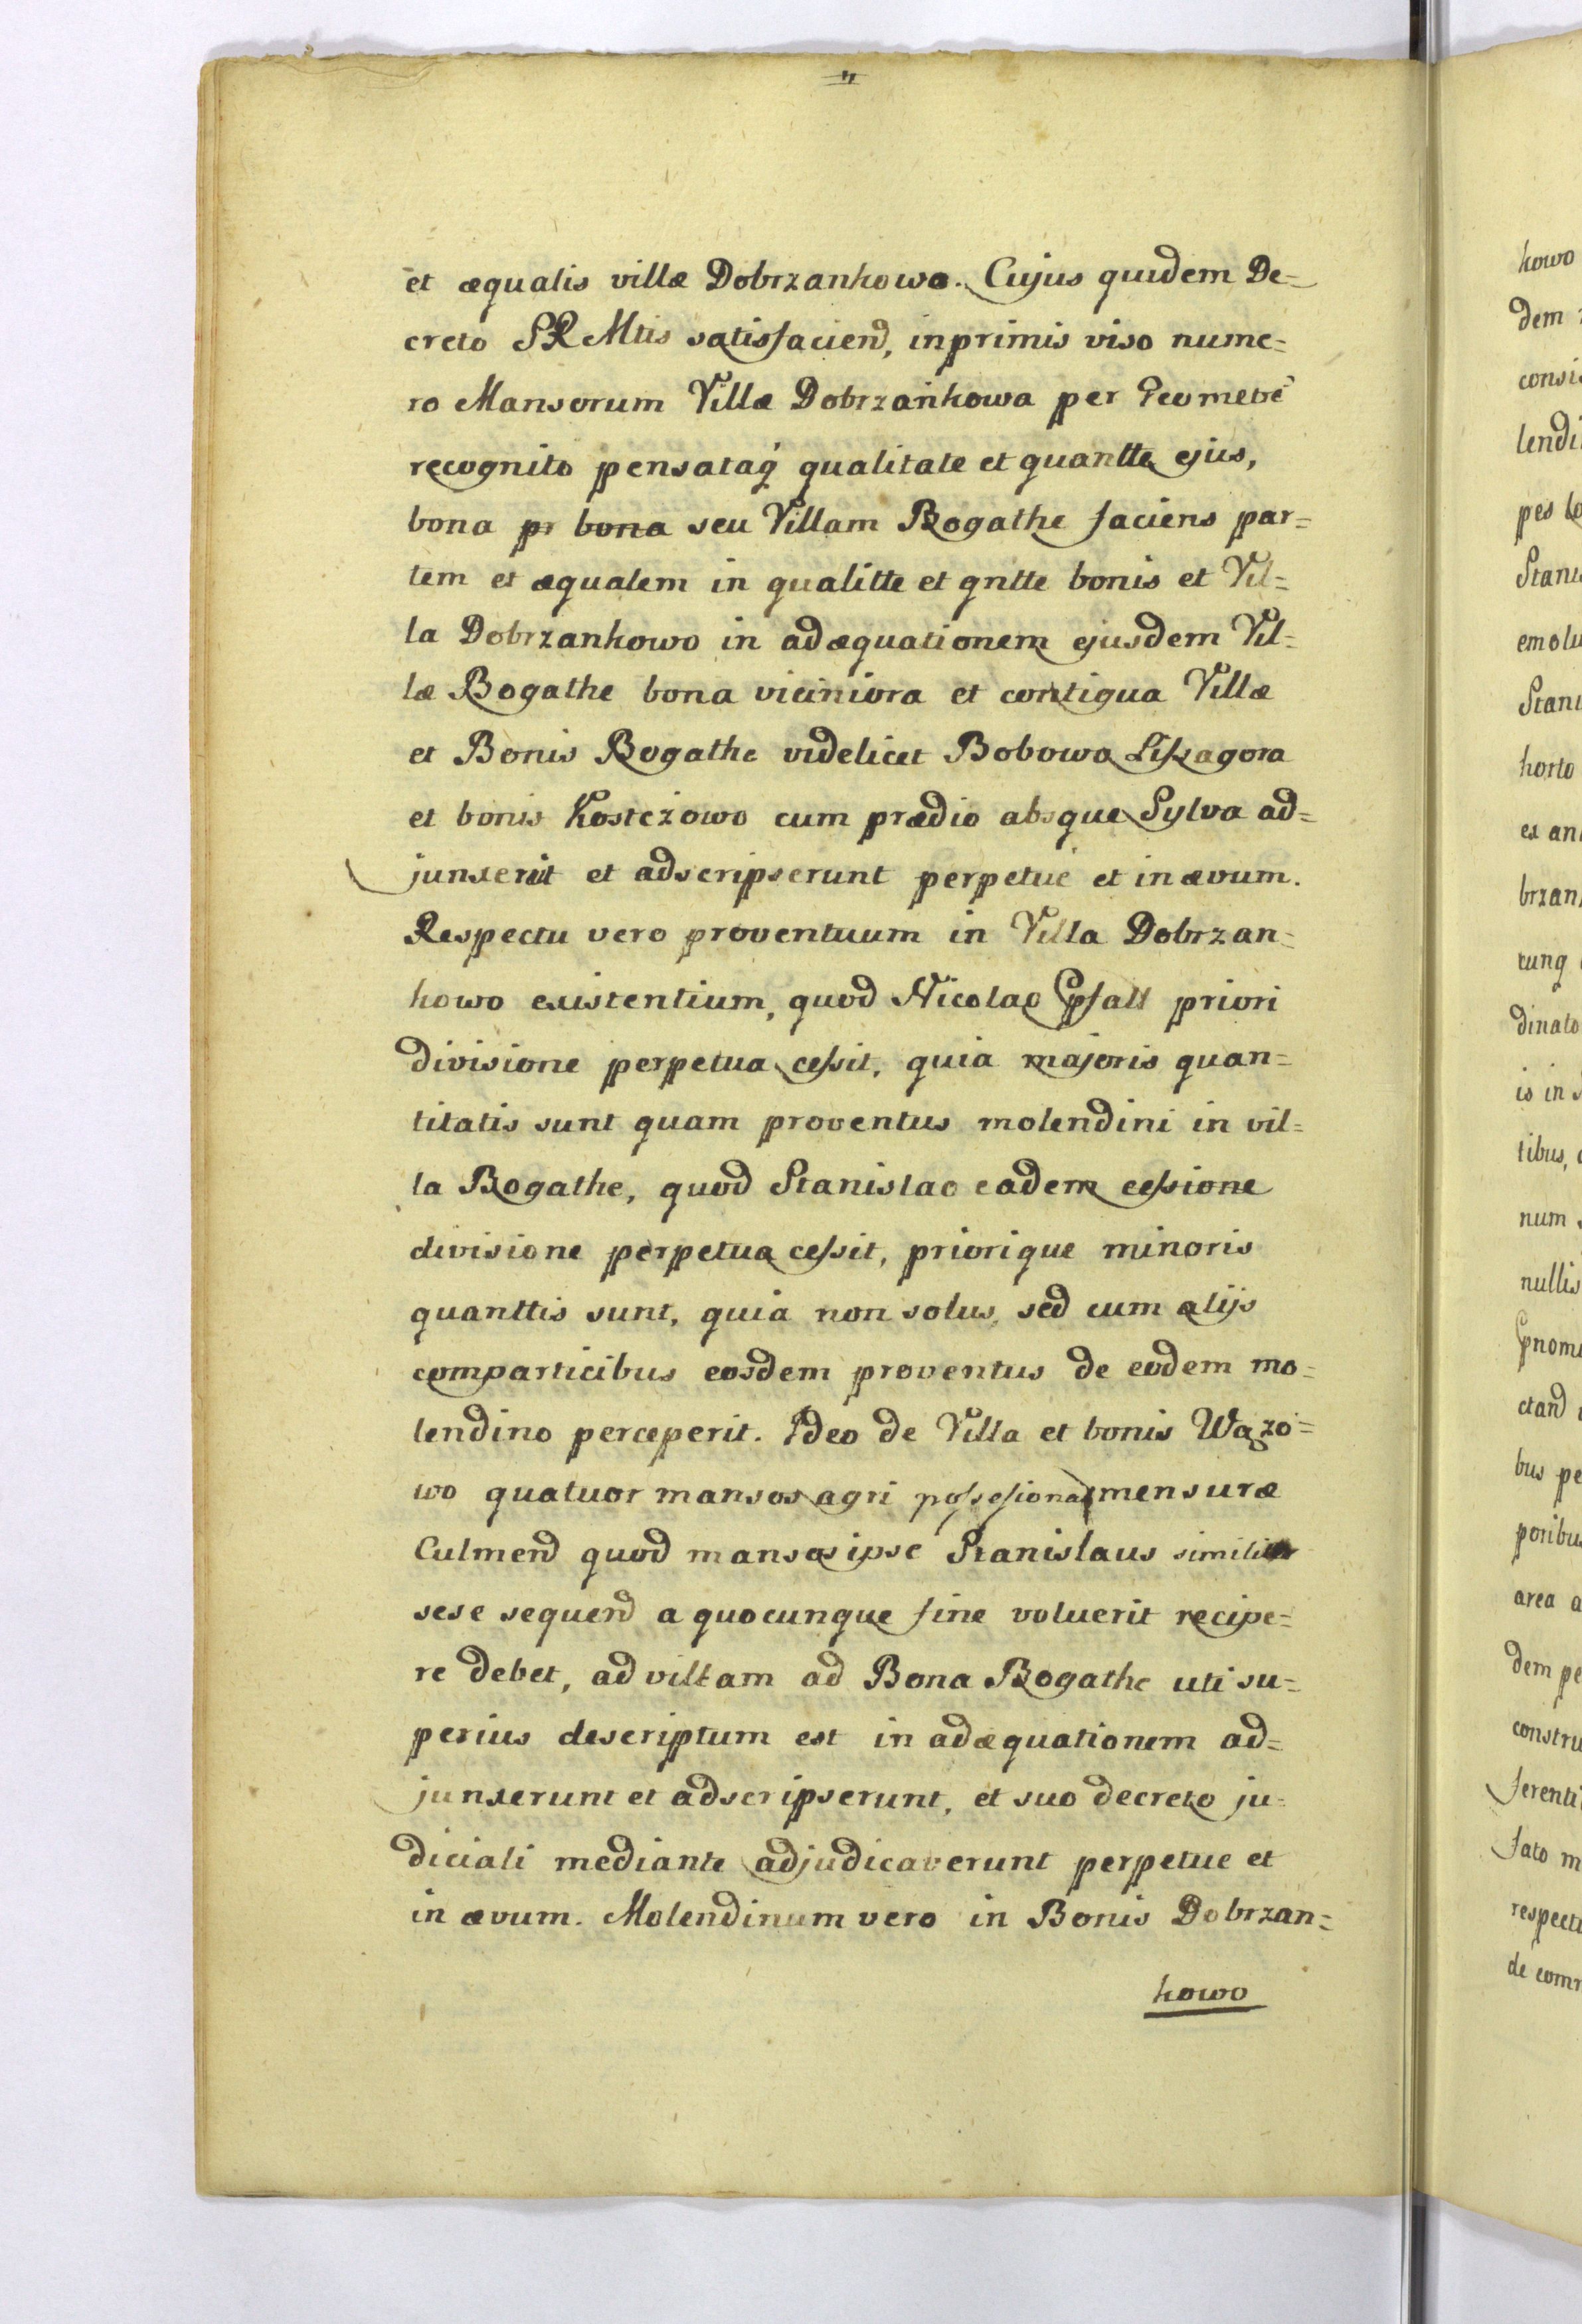 "
et æqualis villæ Dobrzankowo. Cujus quidem De=
creto SRMtis satisfaciend, inprimis viso nume=
ro Mansorum Villæ Dobrzankowa per Geometrē
recognito pensataq qualitate et quantte ejus,
bona pr bona seu Villam Bogathe faciens par=
tem et æqualem in qualitte et qntte bonis et Vil=
la Dobrzankowo in adæquationem ejusdem Vil=
læ Bogathe bona viciniora et contigua Villæ
et Bonis Bogathe videlicet Bobowo Liszagora
et bonis Kosteżowo cum prædio absque Sylva ad=
junxerūt et adscripserunt perpetue et in ævum.
Respectu vero proventuum in Villa Dobrzan=
kowo existentium, quod Nicolao Epfatt priori
divisione perpetua cessit, quia majoris quan=
titatis sunt quam proventus molendini in vil=
la Bogathe, quod Stanislao eadem cessione
divisione perpetua cessit, priorique minoris
quanttis sunt, quia non solus, sed cum alijs
comparticibus eosdem proventus de eodem mo=
lendino perceperit. Ideo de Villa et bonis Wazo=
wo quatuor mansos agri possessionati mensuræ
Culmend quod mansos ipse Stanislaus similiter
sese sequend a quocunque fine voluerit recipe=
re debet, ad villam ad Bona Bogathe uti su=
perius descriptum est in adæquationem ad=
junxerunt et adscripserunt, et suo decreto ju=
diciali mediante adjudicaverunt perpetue et
in ævum. Molendinum vero in Bonis Dobrzan=
kowo
kowo
dem
lendi
pes
Stani
emolu
Stani
horto
et an
brzan
cunq
dinato
is in
tibus,
num
nullis
ctand
bus pe
poribus
area a
dem pe
constru
ferenti
fato m
respectu
de com